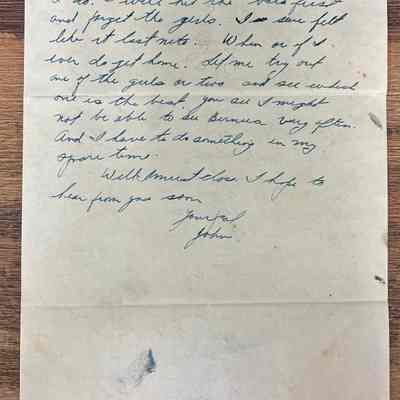 I do. I will hit the bars first
and forget the girls. I sure felt
like it last nite. When or if I
ever do get home. Let me try out
one of the girls or two and see which
one is the best, you see I might
not be able to see Bernice very often.
And I have to do something in my
spare time.
Well I must close. I hope to
hear from you soon
Your pal
John